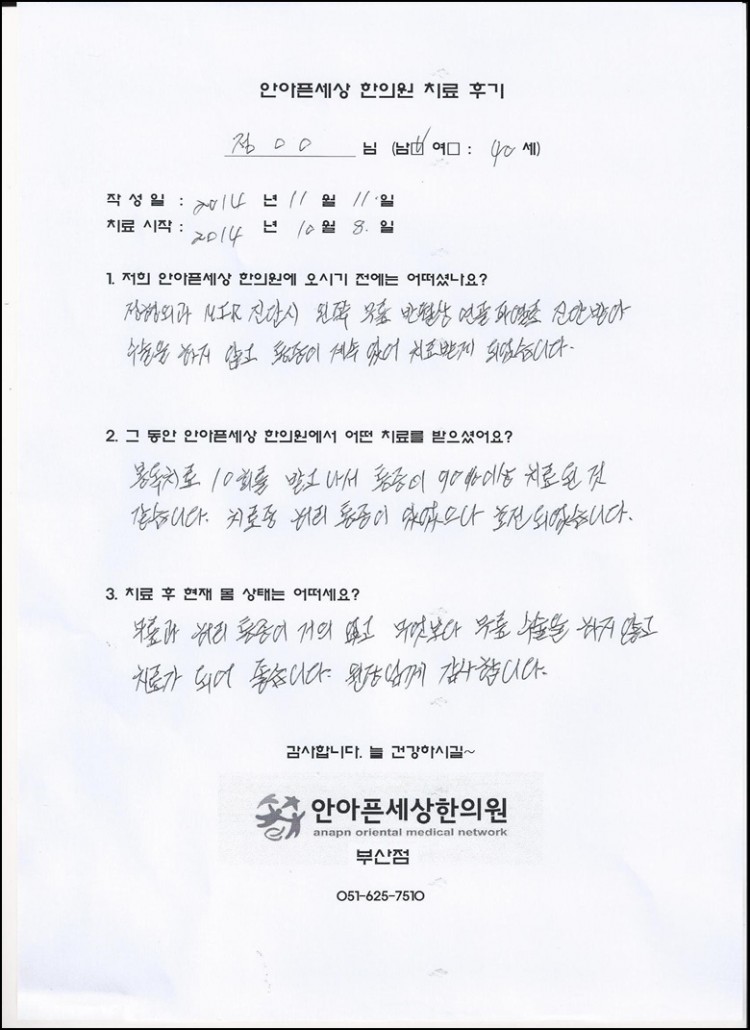 안아픈세상 한의원 치료 후기
정 ○ ○ 님 (남☑ 여□ : 40 세)
작 성 일 : 2014 년 11 월 11 일
치료 시작 : 2014 년 10 월 8. 일
1. 저희 안아픈세상 한의원에 오시기 전에는 어떠셨나요?
정형외과 진단시 왼쪽 무릎 반월상 연골 파열로 진단받아
수술을 하지 않고 통증이 계속 있어 치료받게 되었습니다.
2. 그 동안 안아픈세상 한의원에서 어떤 치료를 받으셨어요?
봉독치료 10회를 받고 나서 통증이 90%이상 치료된 것
같습니다. 치료중 허리 통증이 있었으나 호전되었습니다.
3. 치료 후 현재 몸 상태는 어떠세요?
무릎과 허리 통증이 거의 없고 무엇보다 무릎 수술을 하지 않고
치료가 되어 좋습니다. 원장님께 감사합니다.
감사합니다. 늘 건강하시길~
안아픈세상한의원
anapn oriental medical network
부산점
051-625-7510